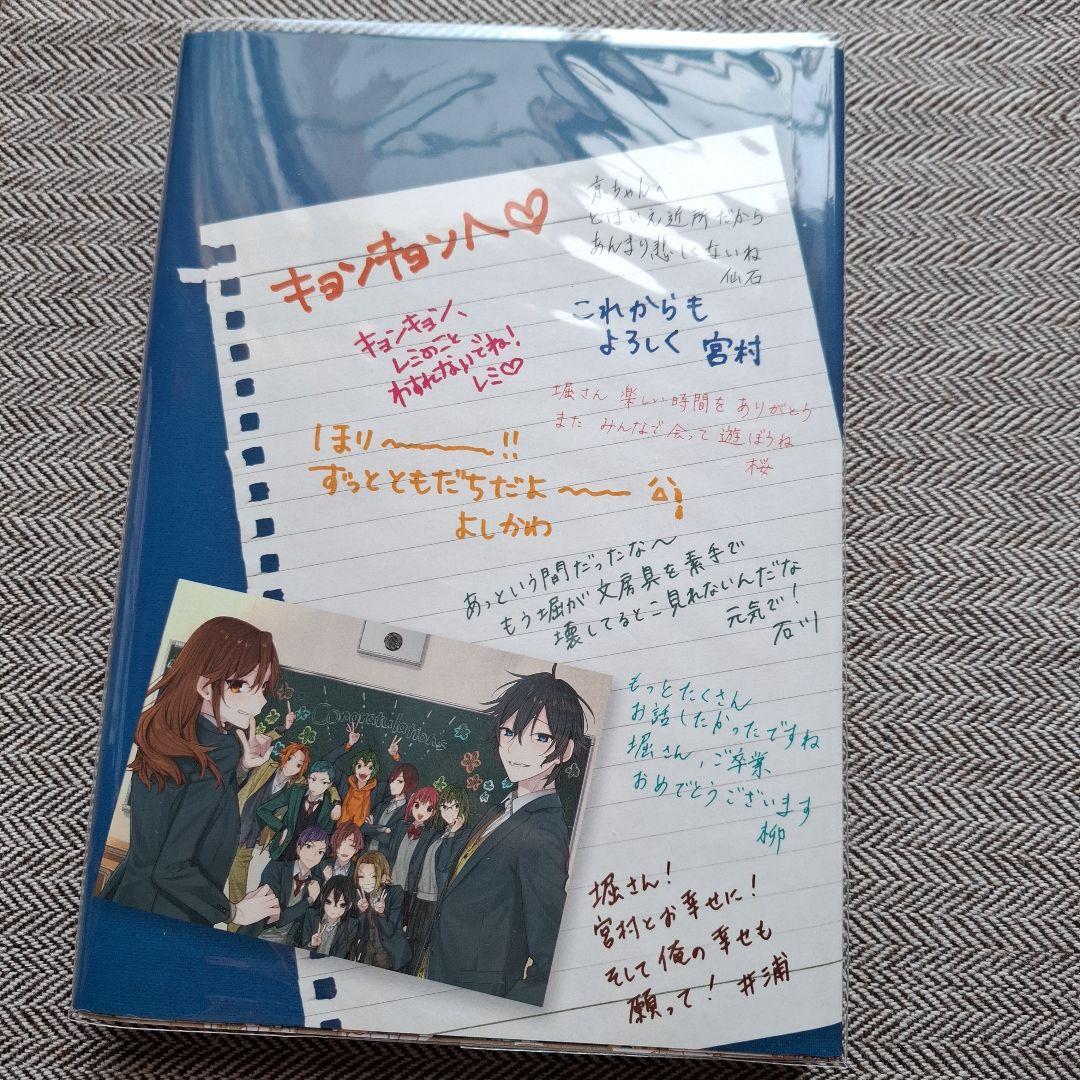 京ちゃんへ
とはいえ近所だから
あんまり悲しくないね
仙石
キョンキョンへ♡
これからも
よろしく 宮村
キョンキョン、
レミのこと
わすれないでね!
レミ♡
堀さん 楽しい時間を ありがとう
また みんなで会って 遊ぼうね
桜
ほり〜!!
ずっとともだちだよ〜
よしかわ
あっという間だったな〜
もう堀が文房具を素手で
壊してるとこ見れないんだな
元気で!
石川
もっとたくさん
お話したかったですね
堀さん、ご卒業
おめでとうございます
柳
Congratulations
堀さん!
宮村とお幸せに!
そして俺の幸せも
願って! 井浦